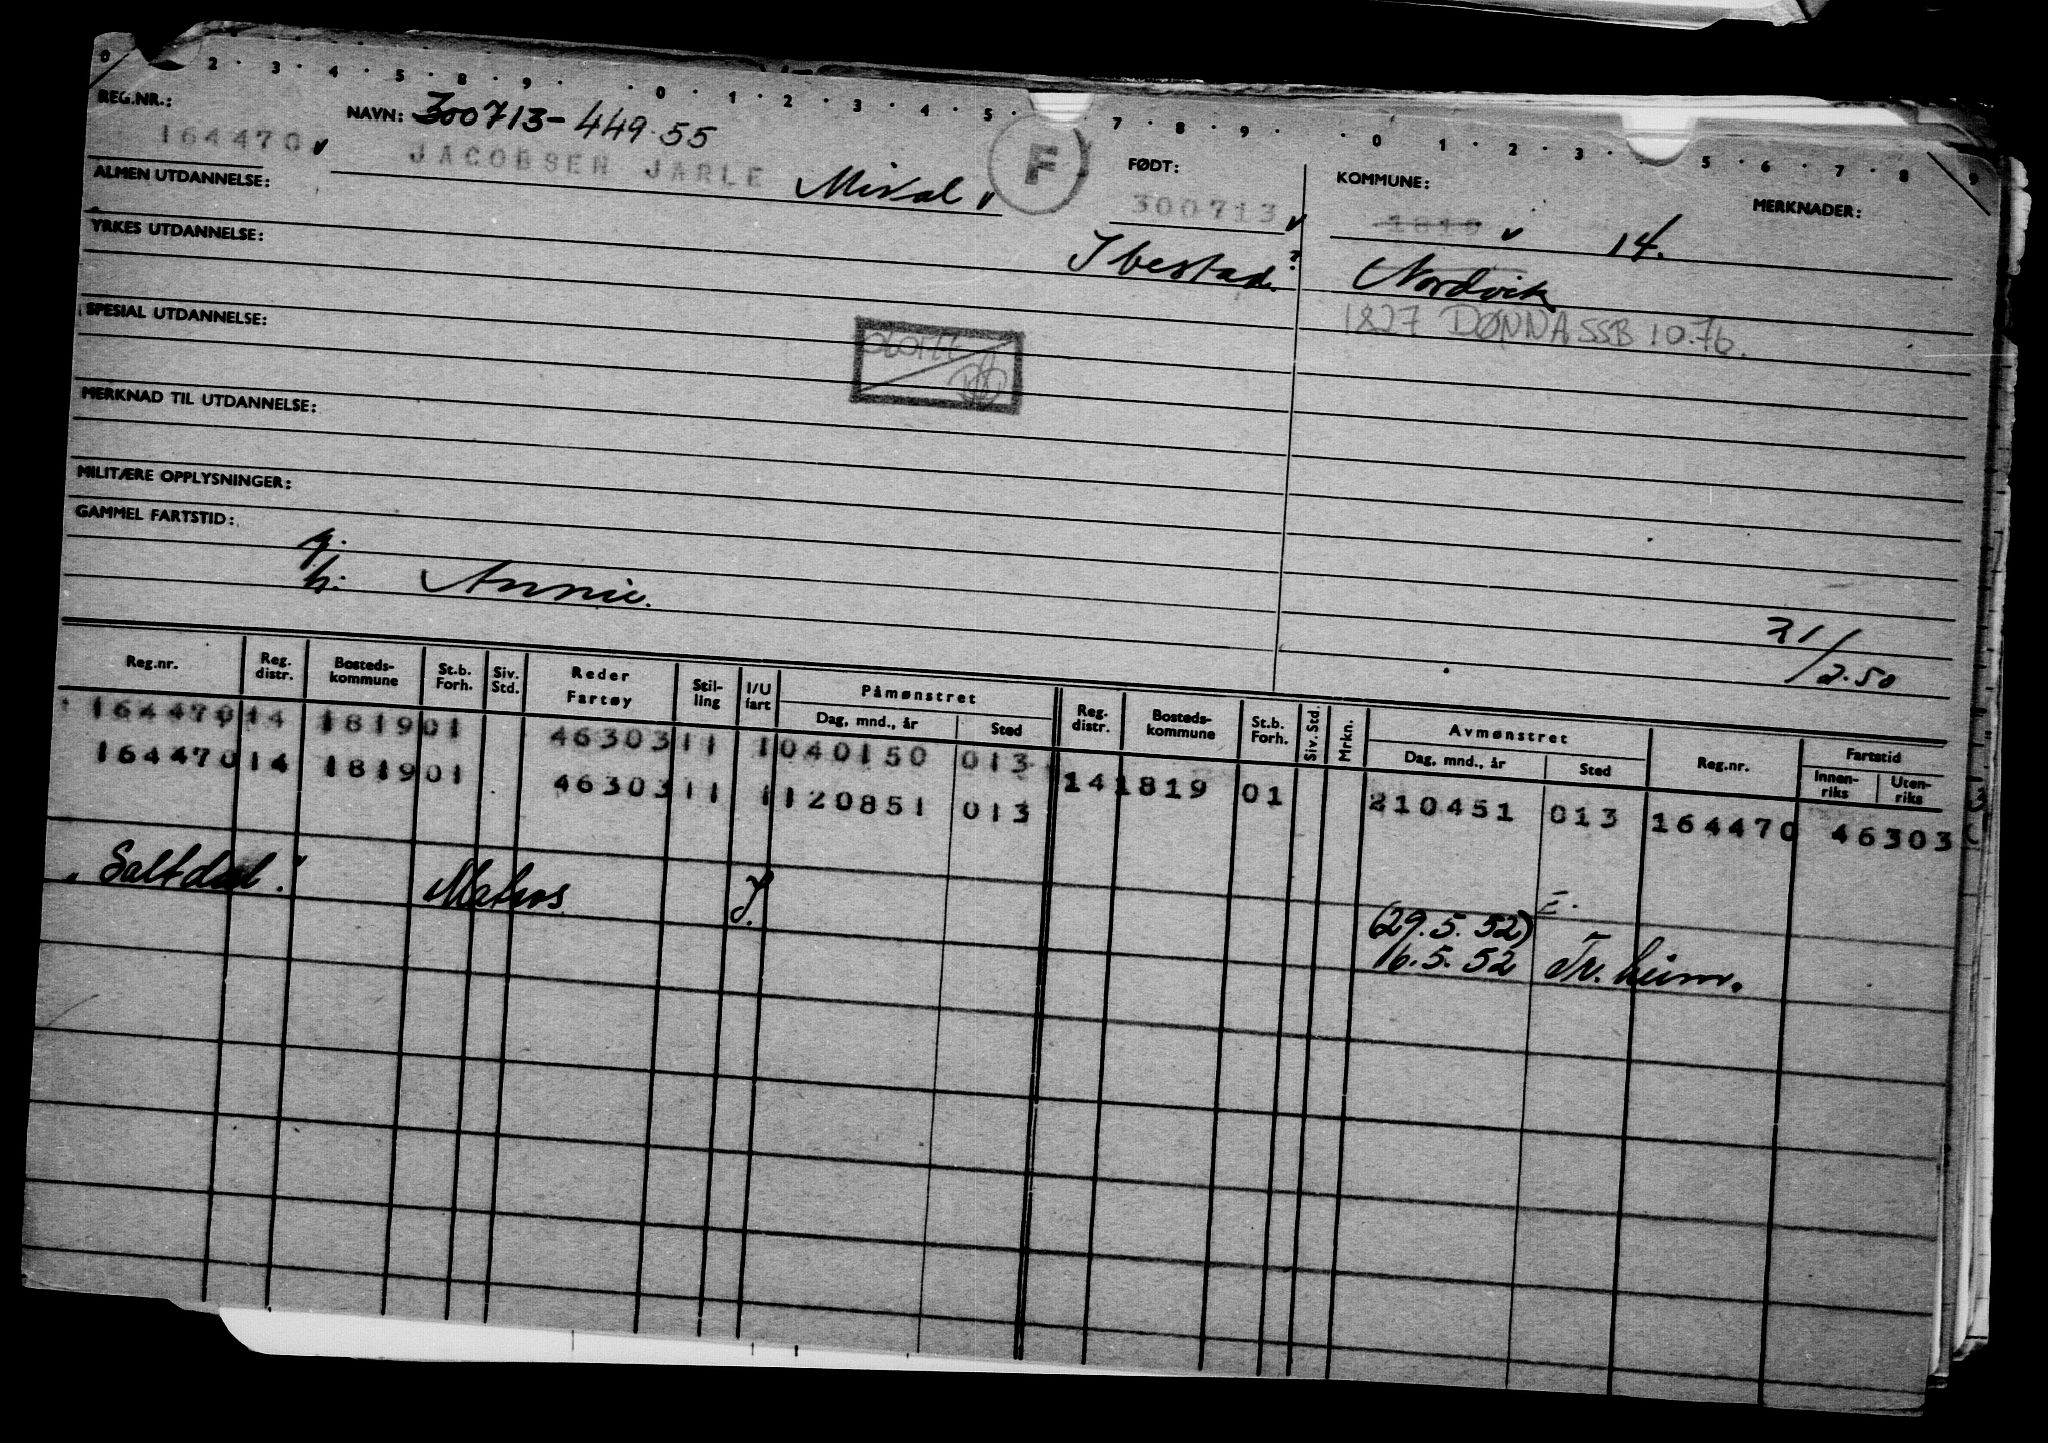 0 2 · 3 · 4 · 5 · 8 · 9 · · 0 · 1 · 2 · 3 · 4 · 5 · 7 · 8 · 9 · · 0 · 1 · 2 · 3 · 5 · 6 · 7 · 8 · 9
REG.NR.: NAVN: 300713-449.55
164470 JACOBSEN JARLE Mikal F FØDT: 300713 KOMMUNE: 1819 14. MERKNADER:
ALMEN UTDANNELSE:
YRKES UTDANNELSE: Ibestad? Nordvik
1827 DØNNA SSB 10.76.
SPESIAL UTDANNELSE:
MERKNAD TIL UTDANNELSE:
MILITÆRE OPPLYSNINGER:
GAMMEL FARTSTID:
h: Annie.
/2.50
Reg.nr. Reg. distr. Bosteds-kommune St.b. Forh. Siv. Std. Reder Fartøy Stil-ling I/U fart Påmønstret Dag, mnd., år Sted Reg. distr. Bosteds-kommune St.b. Forh. Siv. Std. Mrkn. Avmønstret Dag, mnd., år Sted Reg.nr. Fartstid Innen-riks Uten-riks
164470 14 1819 01 46303 11 1 040150 013
164470 14 1819 01 46303 11 1 120851 013 14 1819 01 210451 013 164470 46303
"Saltdal." Matros J. (29.5.52)
16.5.52 Tr.heim.